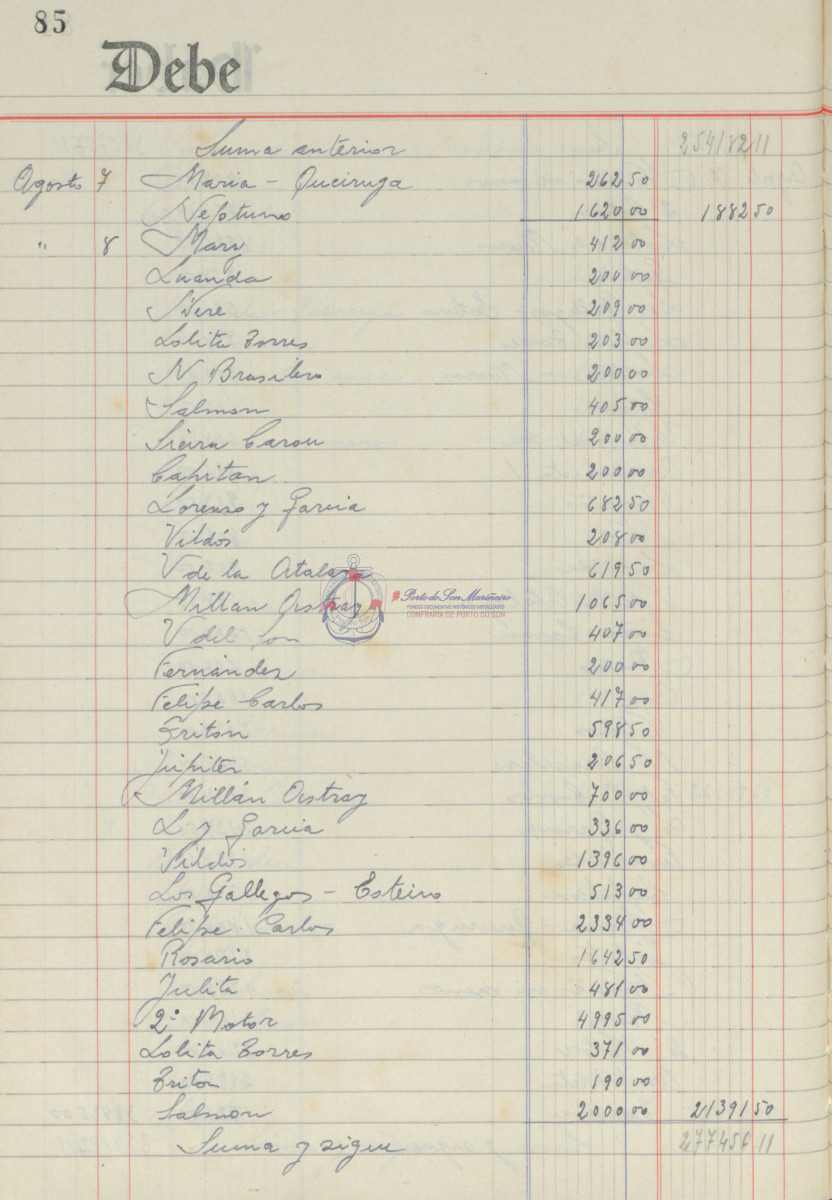 85
Debe
Suma anterior 254182 11
Agosto 7 Maria - Queiruga 262 50
Neptuno 1620 00 1882 50
" 8 Mary 412 00
Luanda 200 00
Nere 209 00
Lolita Torres 203 00
N Brasilero 200 00
Salmon 405 00
Sieira Carou 200 00
Capitan 200 00
Lorenzo y Garcia 682 50
Vildós 208 00
V de la Atalaya 619 50
Millan Astray 1065 00
#Porto do Son Mariñeiro
FONDOS DOCUMENTAIS HISTÓRICOS DIXITALIZADOS
CONFRARÍA DE PORTO DO SON
V del Son 407 00
Fernández 200 00
Felipe Carlos 417 00
Tritón 598 50
Júpiter 206 50
Millán Astray 700 00
L y Garcia 336 00
Vildós 1396 00
Los Gallegos - Esteiro 513 00
Felipe Carlos 2334 00
Rosario 1642 50
Julita 481 00
2º Motor 4995 00
Lolita Torres 371 00
Triton 190 00
Salmon 2000 00 21391 50
Suma y sigue 277456 11